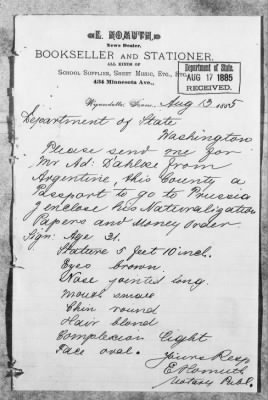 E. HOMUTH,
News Dealer,
BOOKSELLER AND STATIONER,
ALL KINDS OF
School Supplies, Sheet Music, Etc., Etc.
434 Minnesota Ave.,
Department of State.
AUG 17 1885
RECEIVED.
Wyandotte, Kans., Aug 13 1885
Department of State
Washington
Please send one for
Mr Ad. Dahlke from
Argentine this County a
Passport to go to Prussia
I enclose his Naturalization
Papers and Money Order
Sign: Age 31.
Stature 5 feet 10 inch.
Eyes brown.
Nose pointed long.
Mouth small
Chin round
Hair blond
Complexion light
Face oval.
Yours Resp
E Homuth
Notary Publ.